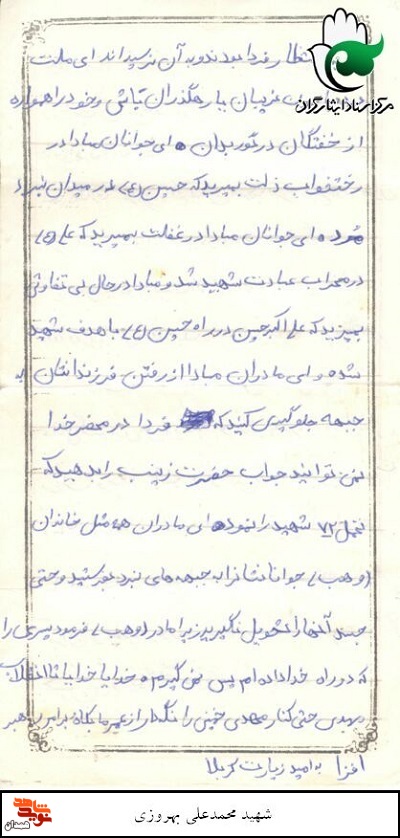 انتظار فردا بودند و به آن نرسیدند ای ملت
غریبان یا رهگذران تباش و خود را همواره
مرکز اسناد ایثارگران
از خفتگان در گور بدان ه ای جوانان مبادا در
رختخواب ذلت بمیرید که حسین (ع) در میدان نبرد
مُرد ه ای جوانان مبادا در غفلت بمیرید که علی (ع)
در محراب عبادت شهید شد و مبادا در حال بی تفاوتی
بمیرید که علی اکبر حسین در راه حسین (ع) با هدف شهید
شده و ای مادران مبادا از رفتن فرزندانتان به
جبهه جلوگیری کنید که فردا در محضر خدا
نمی توانید جواب حضرت زینب را بدهید که
تحمل ۷۲ شهید را نمود ه ای مادران همه مثل خاندان
(وهب) جوانانتان را به جبهه های نبرد بفرستید و حتی
جسد آنها را تحویل نگیرید زیرا مادر (وهب) فرمود سری را
که در راه خدا داده ام پس نمی گیرم ه خدایا خدایا تا انقلاب
مهدی حتی کنار مهدی خمینی را نگهدار از عمر ما بکاه بر عمر رهبر
افزا به امید زیارت کربلا
شهید محمدعلی بهروزی
نوید شاهد
همدان